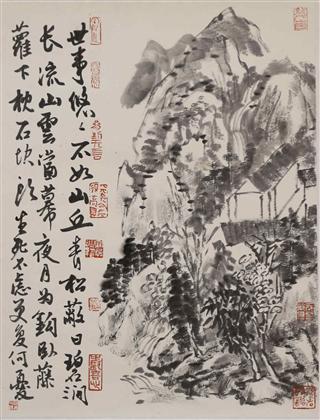 世事悠〻不如山丘青松蔽日碧澗
長流山雲當幕夜月為鈎臥藤
蘿下枕石塊頭生死不慮更復何憂